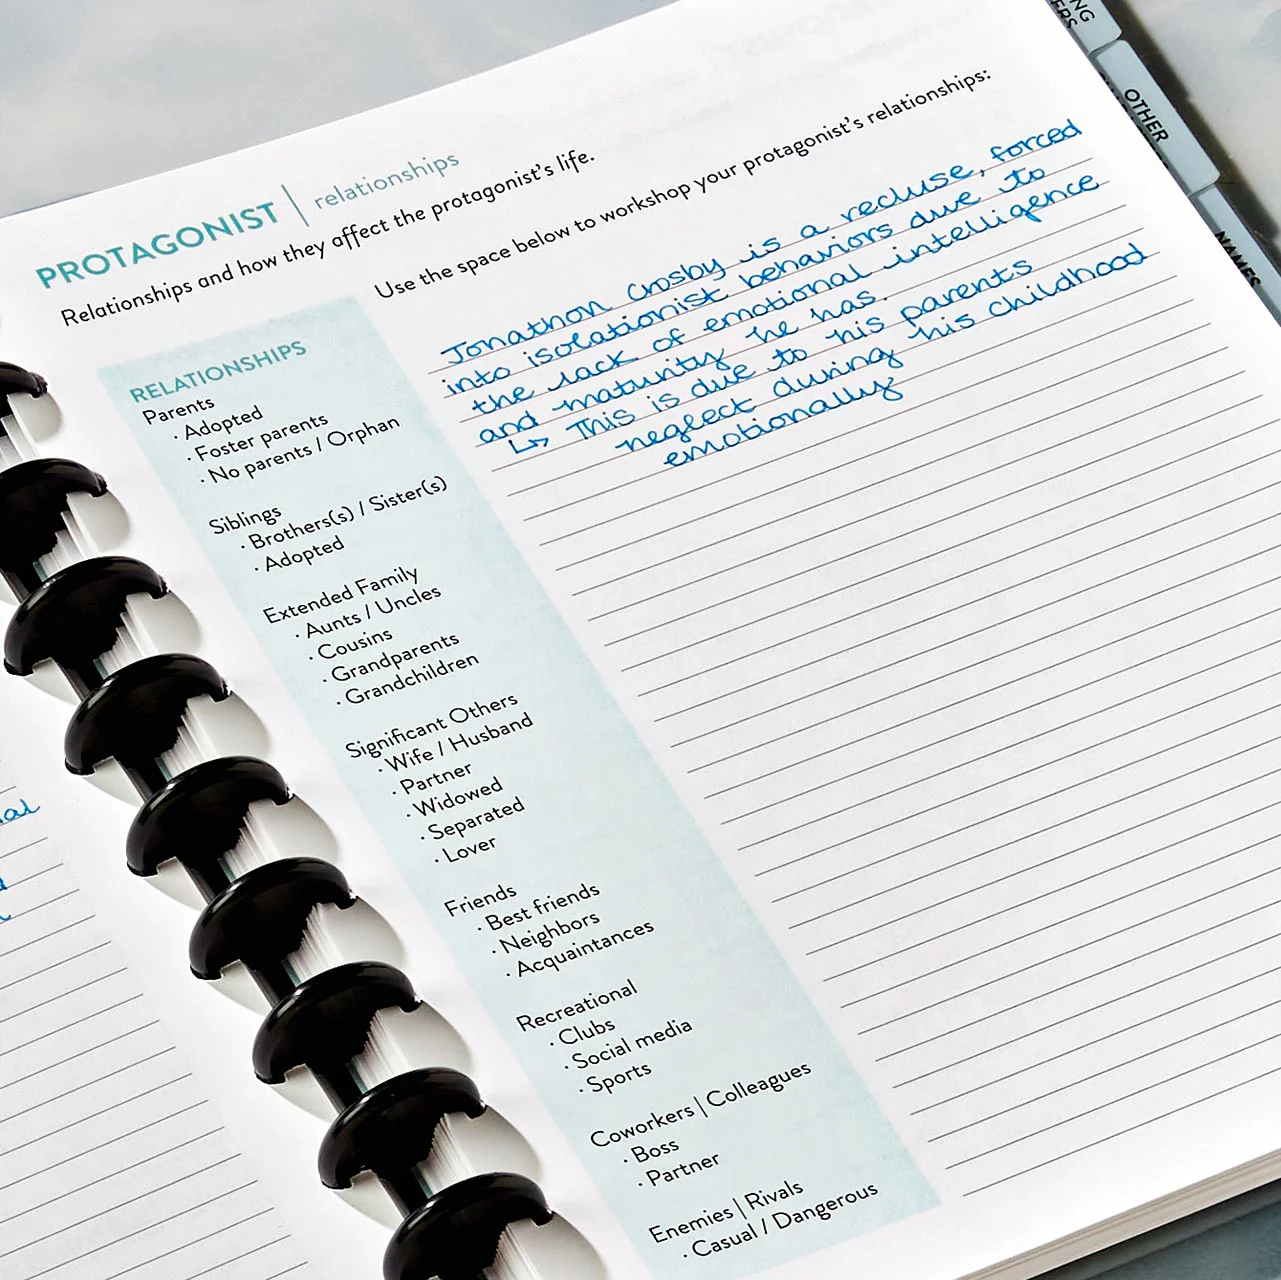 PROTAGONIST | relationships
Relationships and how they affect the protagonist's life.
Use the space below to workshop your protagonist's relationships:
Jonathon Crosby is a recluse, forced
into isolationist behaviors due to
the lack of emotional intelligence
and maturity he has.
↳ This is due to his parents
neglect during his childhood
emotionally
RELATIONSHIPS
Parents
· Adopted
· Foster parents
· No parents / Orphan
Siblings
· Brothers(s) / Sister(s)
· Adopted
Extended Family
· Aunts / Uncles
· Cousins
· Grandparents
· Grandchildren
Significant Others
· Wife / Husband
· Partner
· Widowed
· Separated
· Lover
Friends
· Best friends
· Neighbors
· Acquaintances
Recreational
· Clubs
· Social media
· Sports
Coworkers | Colleagues
· Boss
· Partner
Enemies | Rivals
· Casual / Dangerous
OTHER
NAMES